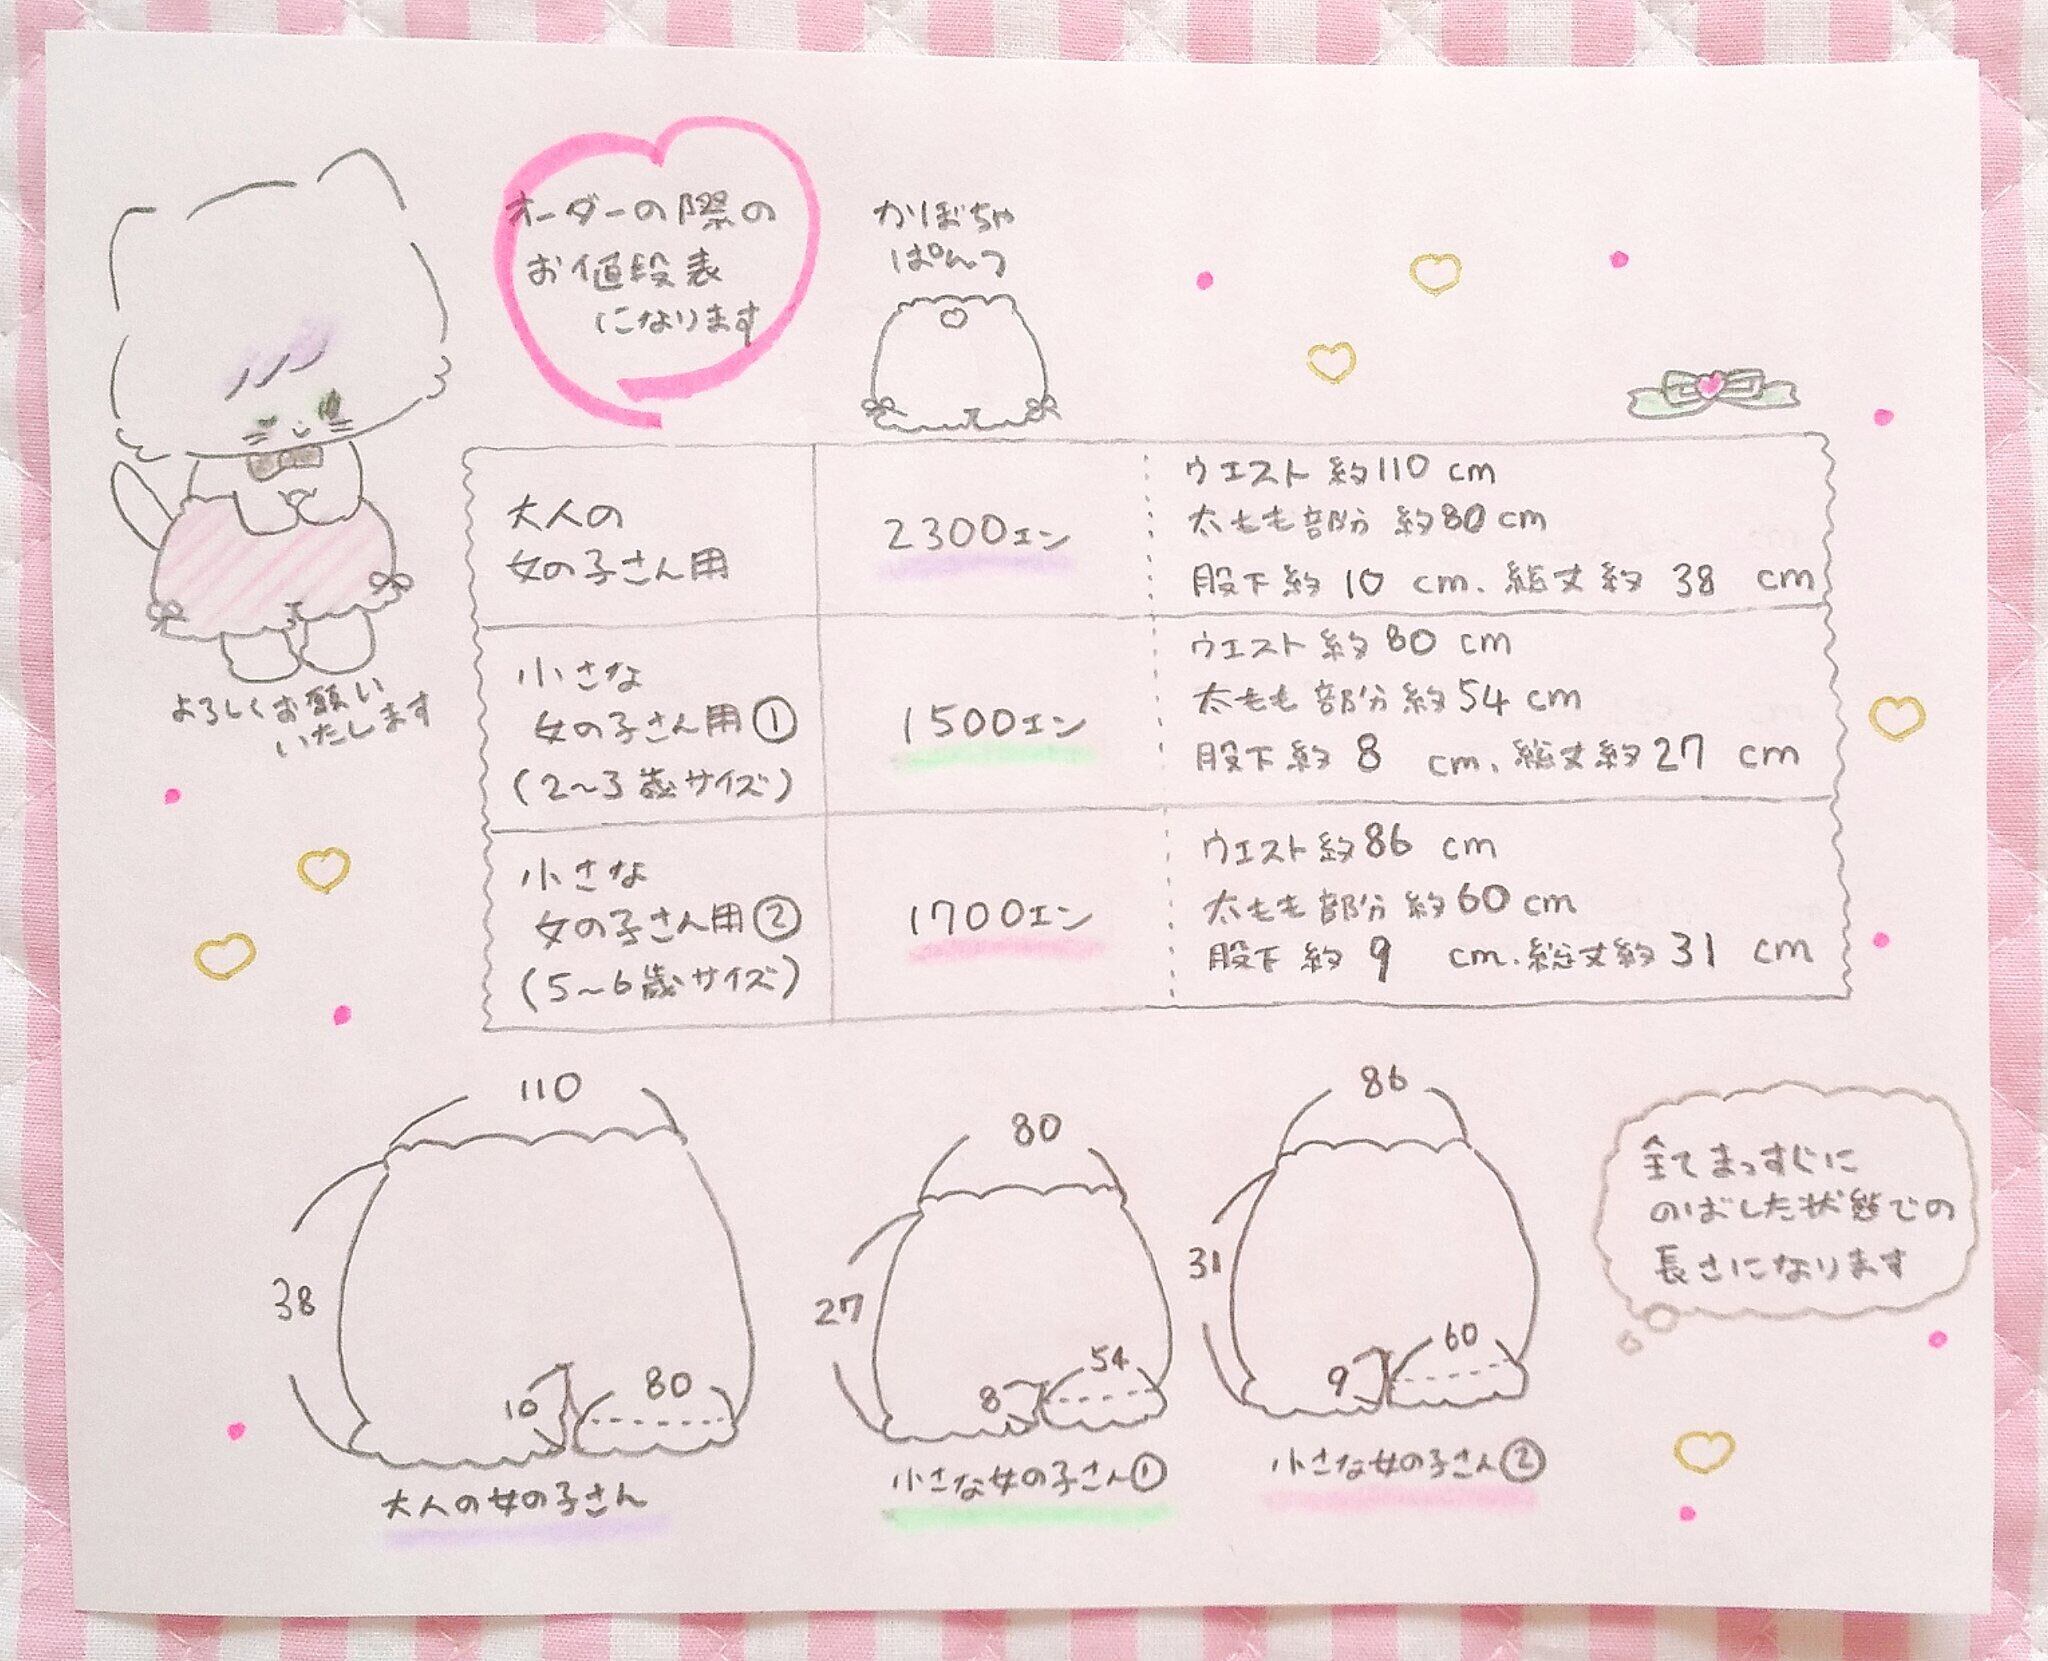 オーダーの際の
お値段表
になります
かぼちゃ
ぱんつ
よろしくお願い
いたします
大人の
女の子さん用
2300エン
ウエスト約110cm
太もも部分 約80cm
股下約10cm、総丈約38cm
小さな
女の子さん用①
(2〜3歳サイズ)
1500エン
ウエスト約80cm
太もも部分約54cm
股下約8cm、総丈約27cm
小さな
女の子さん用②
(5〜6歳サイズ)
1700エン
ウエスト約86cm
太もも部分約60cm
股下約9cm、総丈約31cm
110
38
10
80
大人の女の子さん
80
27
8
54
小さな女の子さん①
86
31
9
60
小さな女の子さん②
全てまっすぐに
のばした状態での
長さになります